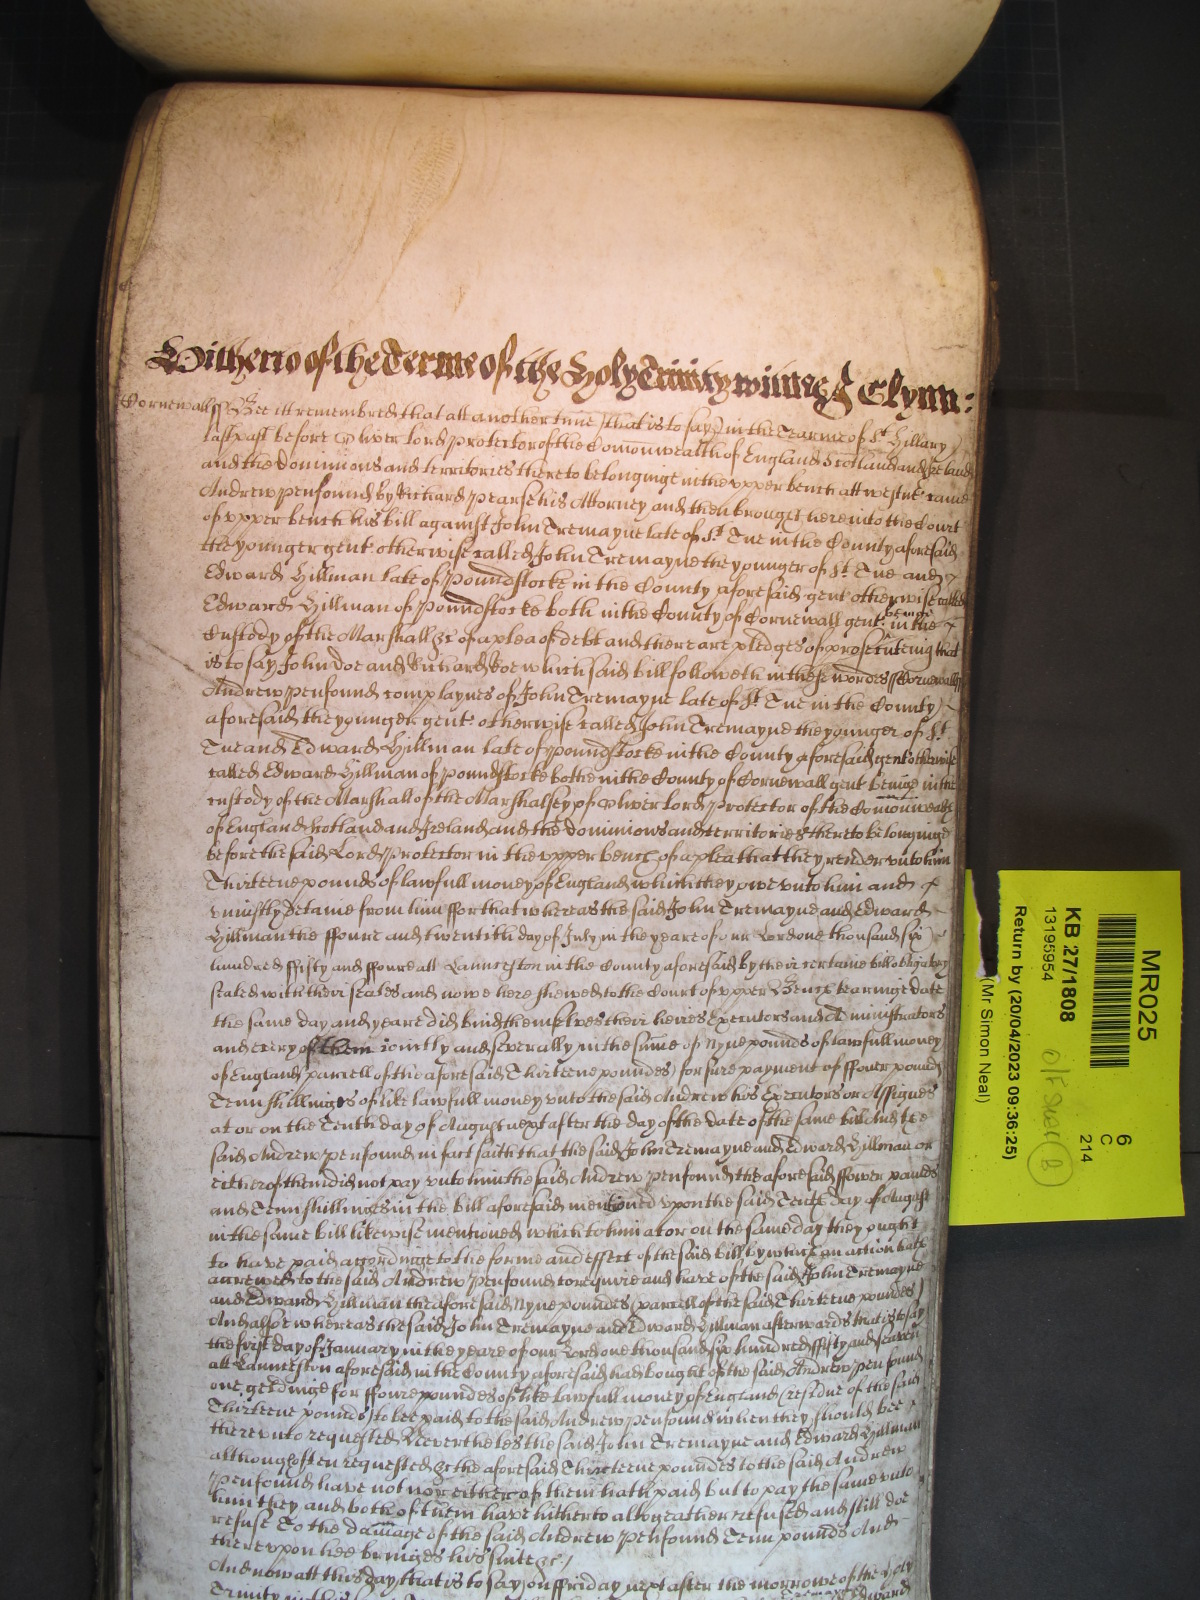 Hitherto of the Terme of the Holy Trinity witnes Glynn:
Cornewall ss Bee itt remembred that att another time (that is to say) in the Tearme of St. Hillary
last past before Oliver lord protector of the Comonwealth of England Scotland and Ireland
and the dominions and territories thereto belonginge in the vpper bench att westmr came
Andrew penfound by Richard pearse his Attorney and then brought here into the Court
of vpper bench his bill against John Tremayne late of St. Tue in the County aforesaid
the younger gent otherwise called John Tremayne the younger of St. Tue and
Edward Hillman late of poundstocke in the County aforesaid gent otherwise called
Edward Hillman of poundstocke both in the County of Cornewall gent: beinge in the
Custody of the Marshall &c of a plea of debt and there are pledges of prosecuteing that
is to say John Doe and Richard Roe which said bill followeth in these wordes ss Cornewall ss
Andrew penfound complaynes of John Tremayne late of St. Tue in the County
aforesaid the younger gent: otherwise called John Tremayne the younger of St.
Tue and Edward Hillman late of poundstocke in the County aforesaid gent otherwise
called Edward Hillman of poundstocke bothe in the County of Cornewall gent beinge in the
custody of the Marshall of the Marshalsey of Oliver lord protector of the Comonwealth
of England Scotland and Ireland and the dominions and territories thereto belonginge
before the said Lord protector in the vpper bench of a plea that they render vnto him
Thirteene pounds of lawfull money of England which they owe vnto him and
vniustly detaine from him ffor that whereas the said John Tremayne and Edward
Hillman the ffoure and twentith day of July in the yeare of our Lord one thousand six
hundred ffifty and ffoure att Launceston in the County aforesaid by their certaine bill obligatory
sealed with their seales and nowe here shewed to the Court of vpper Bench bearinge date
the same day and yeare did bind themselves their heires Executors and Administrators
and every of them iointly and severally in the sume of Nyne poundes of lawfull money
of England (parcell of the aforesaid Thirteene poundes) for sure payment of ffower pounds
Tenn shillinges of like lawfull money vnto the said Andrew his Executors or Assignes
at or on the Tenth day of August next after the day of the date of the same bill And the
said Andrew penfound in fact saith that the said John Tremayne and Edward Hillman or
either of them did not pay vnto him the said Andrew penfound the aforesaid ffower pounds
and Tenn shillinges in the bill aforesaid mentioned vpon the said Tenth day of August
in the same bill likewise mentioned which to him at or on the same day they ought
to have paid accordinge to the forme and effect of the said bill by which an action hath
accrewed to the said Andrew penfound to require and have of the said John Tremayne
and Edward Hillman the aforesaid Nyne poundes (parcell of the said Thirteene poundes)
And alsoe whereas the said John Tremayne and Edward Hillman afterwards that is to say
the first day of January in the yeare of our Lord one thousand six hundred ffifty and seaven
att Launceston aforesaid in the County aforesaid had bought of the said Andrew penfound
one geldinge for ffoure poundes of like lawfull money of England (residue of the said
Thirteene pounds) to bee paid to the said Andrew penfound when they should bee
therevnto requested Neverthelesse the said John Tremayne and Edward Hillman
although often requested &c the aforesaid Thirteene poundes to the said Andrew
penfound have not nor either of them hath paid but to pay the same vnto
him they and both of them have hitherto altogeather refused and still doe
refuse To the damage of the said Andrew penfound Tenn pounds And
therevpon hee bringes his suite &c /
And now att this day that is to say on ffriday next after the morrowe of the holy
Trinity in this
MR025
6
C
214
KB 27/1808
13195954
Return by (20/04/2023 09:36:25)
(Mr Simon Neal)